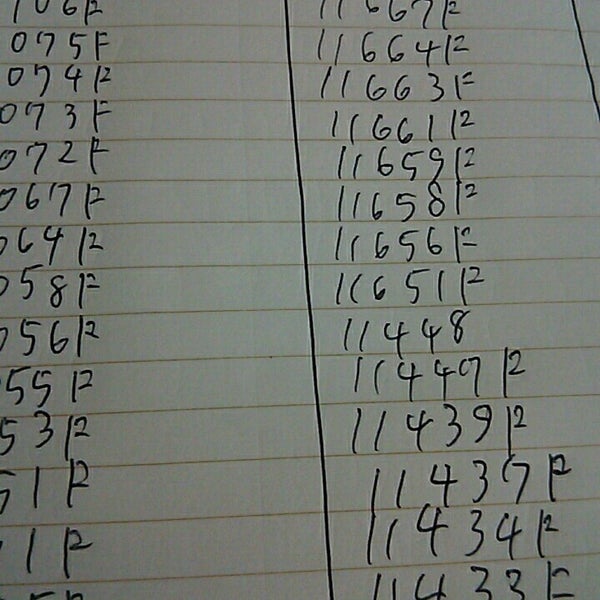 106F
075F
074F
073F
072F
067F
064F
058F
056F
55F
53F
51F
1F
11667F
11664F
11663F
11661F
11659F
11658F
11656F
11651F
11448
11447F
11439F
11437F
11434F
11433F